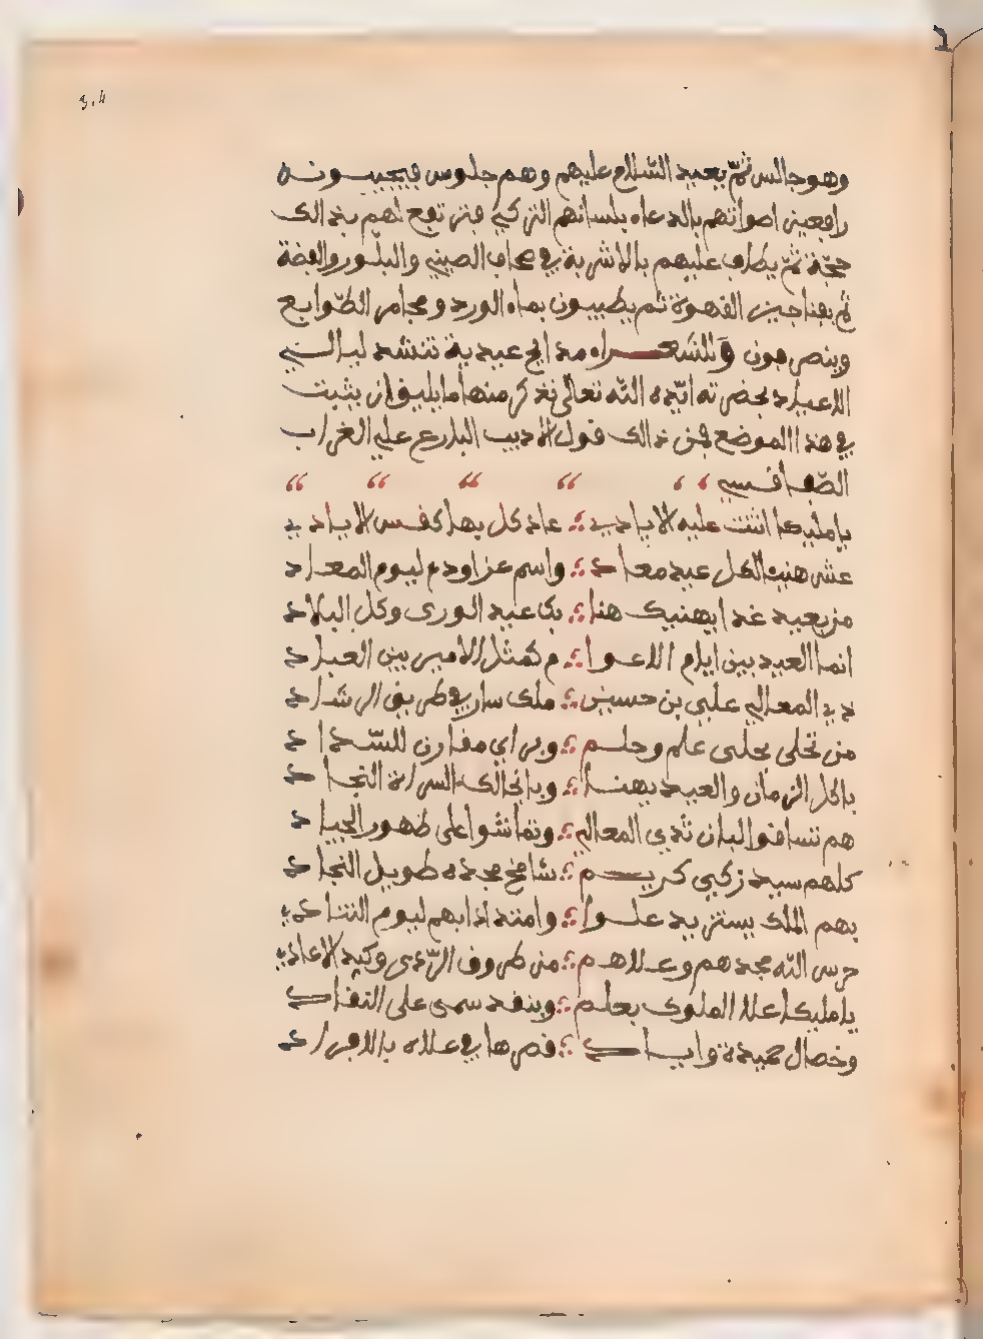 3.4
وهو جالس ثمّ يعيد السّلام عليهم وهم جلوس فيجيبونه
رافعين اصواتهم بالدعاء بلسانهم التركي فترتفع لهم بذالك
ضجّة ثمّ يطاف عليهم بالاشربة في صحاف الصيني والبلّور والفضة
ثم بفناجين القهوة ثم يطيبون بماء الورد ومجامر الطّوابع
وينصرفون وللشعراء مدايح عيدية تنشد ليالي
الاعياد بحضرته ايّده اللّه تعالى نذكر منها ما يليق ان يثبت
في هذا الموضع فمن ذالك قول الاديب البارع علي الغراب
الصّفاقسي
يا مليكا اثنت عليه الايادي عاد كل بها كقس الايادي
عش هنيئا لكل عيد معاد واسم عزا ودم ليوم المعاد
من بعيد غدا يهنيك هنا بك عيد الورى وكل البلاد
انما العيد بين ايام الاعوا م كمثل الامير بين العباد
ذي المعالي علي بن حسين ملك سار في طريق الرشاد
من تحلى بحلى علم وحلم وبراي مفارن للسّداد
بك كل الزمان والعيد يهنا وبانجالك السراة النجاد
هم تساقوا لبان ثدي المعالي وتماشوا على ظهور الجياد
كلهم سيد زكي كريم شامخ مجده طويل النجاد
بهم الملك يستزيد علوا وامتدادا بهم ليوم التنادي
حرس اللّه مجدهم وعلاهم من صروف الرّدى وكيد الاعادي
يا مليكا علا الملوك بعلم وبنقد سمى على النقاد
وخصال حميدة واياد قصرها في علاه بالافراد